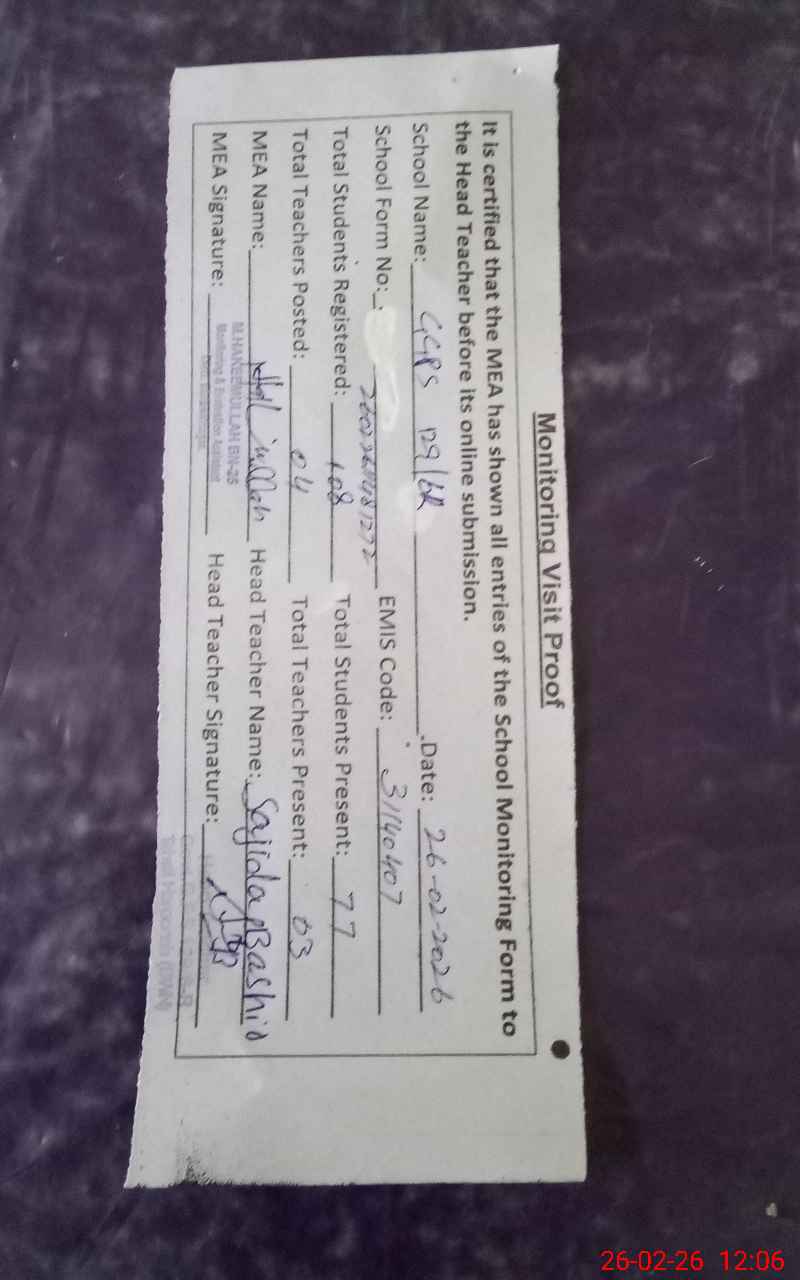 Monitoring Visit Proof
It is certified that the MEA has shown all entries of the School Monitoring Form to
the Head Teacher before its online submission.
School Name: GGPS 129/6R .Date: 26-02-2026
School Form No: EMIS Code: 31140407
Total Students Registered: 108 Total Students Present: 77
Total Teachers Posted: 04 Total Teachers Present: 03
MEA Name: Head Teacher Name: Sajida Bashir
MEA Signature: M.HAKEEMULLAH Head Teacher Signature:
Monitoring & Evaluation Assistant
26-02-26 12:06